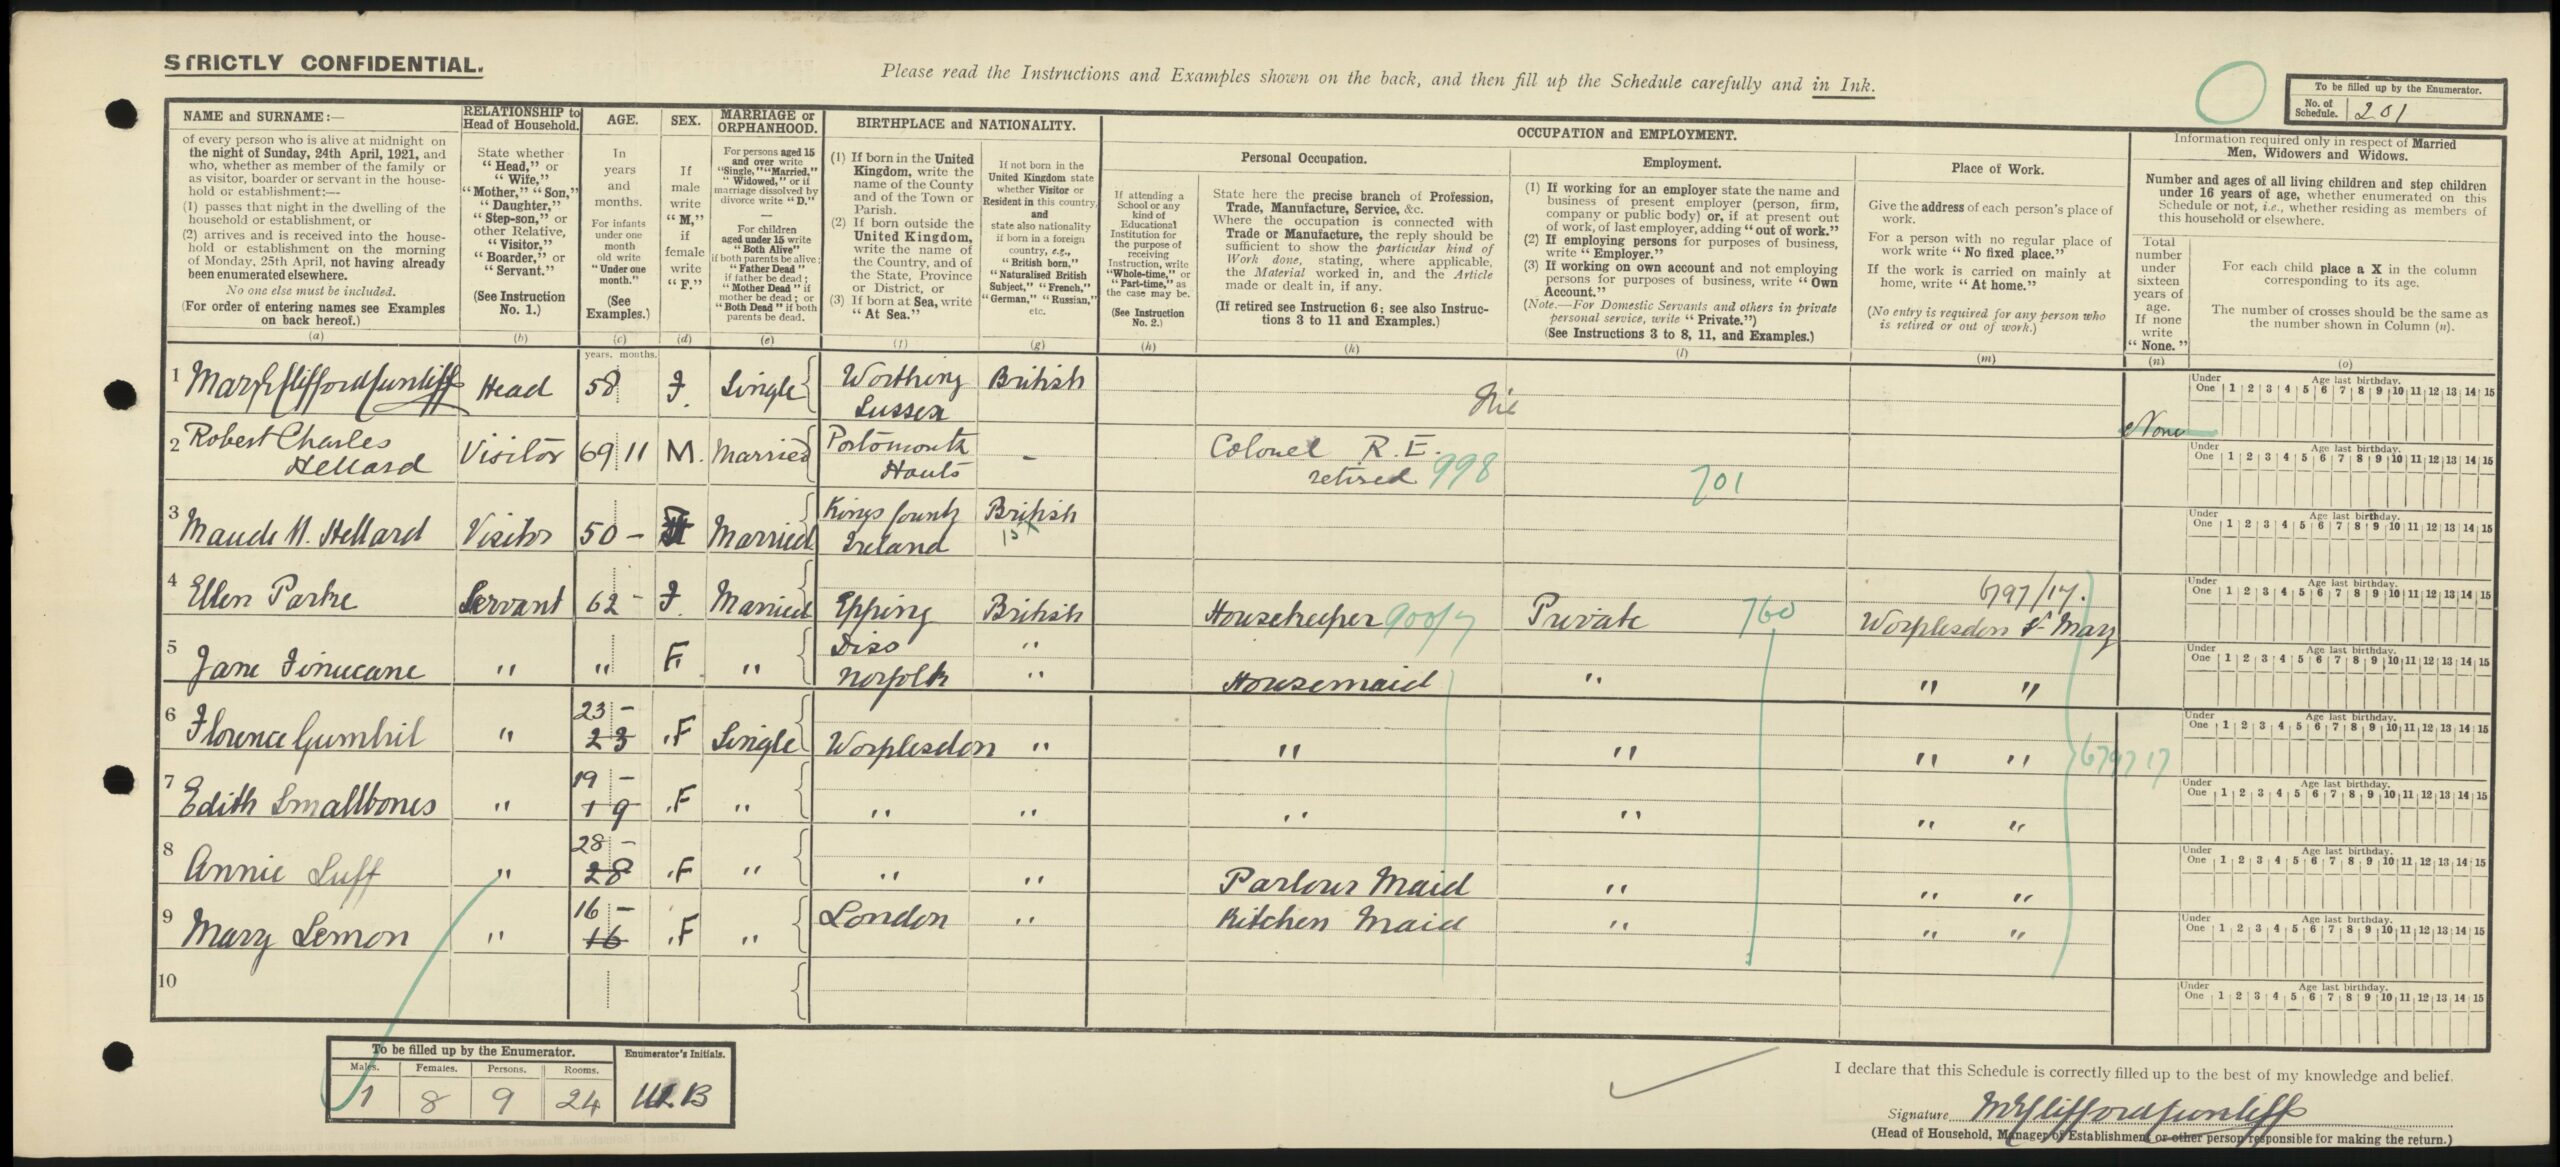 STRICTLY CONFIDENTIAL.
Please read the Instructions and Examples shown on the back, and then fill up the Schedule carefully and in Ink.
To be filled up by the Enumerator.
No. of Schedule. 201
NAME and SURNAME:—
of every person who is alive at midnight on
the night of Sunday, 24th April, 1921, and
who, whether as member of the family or
as visitor, boarder or servant in the house-
hold or establishment:—
(1) passes that night in the dwelling of the
household or establishment, or
(2) arrives and is received into the house-
hold or establishment on the morning
of Monday, 25th April, not having already
been enumerated elsewhere.
No one else must be included.
(For order of entering names see Examples
on back hereof.)
(a)
RELATIONSHIP to
Head of Household.
State whether
"Head," or
"Wife,"
"Mother," "Son,"
"Daughter,"
"Step-son," or
other Relative,
"Visitor,"
"Boarder," or
"Servant."
(See Instruction
No. 1.)
(b)
AGE.
In
years
and
months.
For infants
under one
month
old write
"Under one
month."
(See
Examples.)
(c)
years. months.
SEX.
If
male
write
"M,"
if
female
write
"F."
(d)
MARRIAGE or
ORPHANHOOD.
For persons aged 15
and over write
"Single," "Married,"
"Widowed," or if
marriage dissolved by
divorce write "D."
—
For children
aged under 15 write
"Both Alive"
if both parents be alive;
"Father Dead"
if father be dead;
"Mother Dead" if
mother be dead; or
"Both Dead" if both
parents be dead.
(e)
BIRTHPLACE and NATIONALITY.
(1) If born in the United
Kingdom, write the
name of the County
and of the Town or
Parish.
(2) If born outside the
United Kingdom,
write the name of
the Country, and of
the State, Province
or District, or
(3) If born at Sea, write
"At Sea."
(f)
If not born in the
United Kingdom state
whether Visitor or
Resident in this country,
and
state also nationality
if born in a foreign
country, e.g.,
"British born,"
"Naturalised British
Subject," "French,"
"German," "Russian,"
etc.
(g)
OCCUPATION and EMPLOYMENT.
If attending a
School or any
kind of
Educational
Institution for
the purpose of
receiving
Instruction, write
"Whole-time," or
"Part-time," as
the case may be.
(See Instruction
No. 2.)
(h)
Personal Occupation.
State here the precise branch of Profession,
Trade, Manufacture, Service, &c.
Where the occupation is connected with
Trade or Manufacture, the reply should be
sufficient to show the particular kind of
Work done, stating, where applicable,
the Material worked in, and the Article
made or dealt in, if any.
(If retired see Instruction 6; see also Instruc-
tions 3 to 11 and Examples.)
(k)
Employment.
(1) If working for an employer state the name and
business of present employer (person, firm,
company or public body) or, if at present out
of work, of last employer, adding "out of work."
(2) If employing persons for purposes of business,
write "Employer."
(3) If working on own account and not employing
persons for purposes of business, write "Own
Account."
(Note.—For Domestic Servants and others in private
personal service, write "Private.")
(See Instructions 3 to 8, 11, and Examples.)
(l)
Place of Work.
Give the address of each person's place of
work.
For a person with no regular place of
work write "No fixed place."
If the work is carried on mainly at
home, write "At home."
(No entry is required for any person who
is retired or out of work.)
(m)
Information required only in respect of Married
Men, Widowers and Widows.
Number and ages of all living children and step children
under 16 years of age, whether enumerated on this
Schedule or not, i.e., whether residing as members of
this household or elsewhere.
Total
number
under
sixteen
years of
age.
If none
write
"None."
(n)
For each child place a X in the column
corresponding to its age.
The number of crosses should be the same as
the number shown in Column (n).
(o)
Under One Age last birthday. 1 2 3 4 5 6 7 8 9 10 11 12 13 14 15
1 Mary E Clifford Cunliffe Head 58 F. Single Worthing Sussex British Nil
2 Robert Charles Hellard Visitor 69 11 M. Married Portsmouth Hants - Colonel R.E. retired 998 701 None
3 Maude M. Hellard Visitor 50 - F Married Kings County Ireland British 15 X
4 Ellen Parke Servant 62 - F. Married Epping British Housekeeper 900/7 Private 760 6797/17. Worplesdon St Mary
5 Jane Finucane " " F " Diss Norfolk " " Housemaid " " "
6 Florence Gumbril " 23 - 23 "F Single Worplesdon " " " " " 6797 17
7 Edith Smallbones " 19 - 19 "F " " " " " " "
8 Annie Luff " 28 - 28 "F " " " Parlour Maid " " "
9 Mary Lemon " 16 - 16 "F " London " Kitchen Maid " " "
10
To be filled up by the Enumerator.
Males. Females. Persons. Rooms.
1 8 9 24
Enumerator's Initials.
I declare that this Schedule is correctly filled up to the best of my knowledge and belief.
Signature M E Clifford Cunliffe
(Head of Household, Manager of Establishment or other person responsible for making the return.)